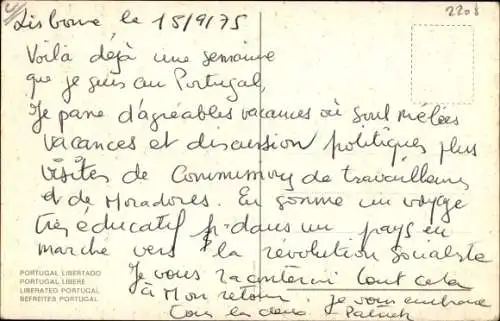 2208
Lisbonne le 15/9/75
Voilà déjà une semaine
que je suis au Portugal,
Je passe d'agréables vacances où sont mêlées
vacances et discussion politiques plus
visites de Commissions de travailleurs
et de Moradores. En somme un voyage
très éducatif dans un pays en
marche vers "la révolution socialiste
Je vous raconterai tout cela
à mon retour. Je vous embrasse
tous les deux Patrick
PORTUGAL LIBERTADO
PORTUGAL LIBERE
LIBERATED PORTUGAL
BEFREITES PORTUGAL